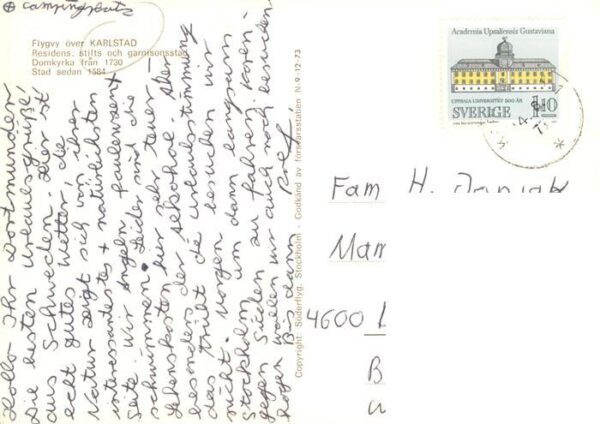 ⊕ campingplatz
Flygvy över KARLSTAD
Residens, stifts och garnisonsstad
Domkyrka från 1730
Stad sedan 1584
Hallo Ihr Dortmunder
Die besten Urlaubsgrüße,
aus Schweden. Hier ist
echt gutes Wetter, die
Natur zeigt sich von ihrer
interessantesten + natürlichsten
Seite. Wir angeln, faulenzen
schwimmen. Leider sind die
Lebenskosten hier sehr teuer -
besonders der Alkohol. Aber
das trübt die Urlaubsstimmung
nicht. Morgen besuchen wir
Stockholm um dann langsam
gegen Süden zu fahren. Kopen-
hagen wollen wir auch noch besuchen
Bis dann
Copyright: Söderflyg. Stockholm - Godkänd av försvarsstaben N-9-12-73
Academia Upsaliensis Gustaviana
UPPSALA UNIVERSITET 500 ÅR
SVERIGE 1.10
Fam H.
4600